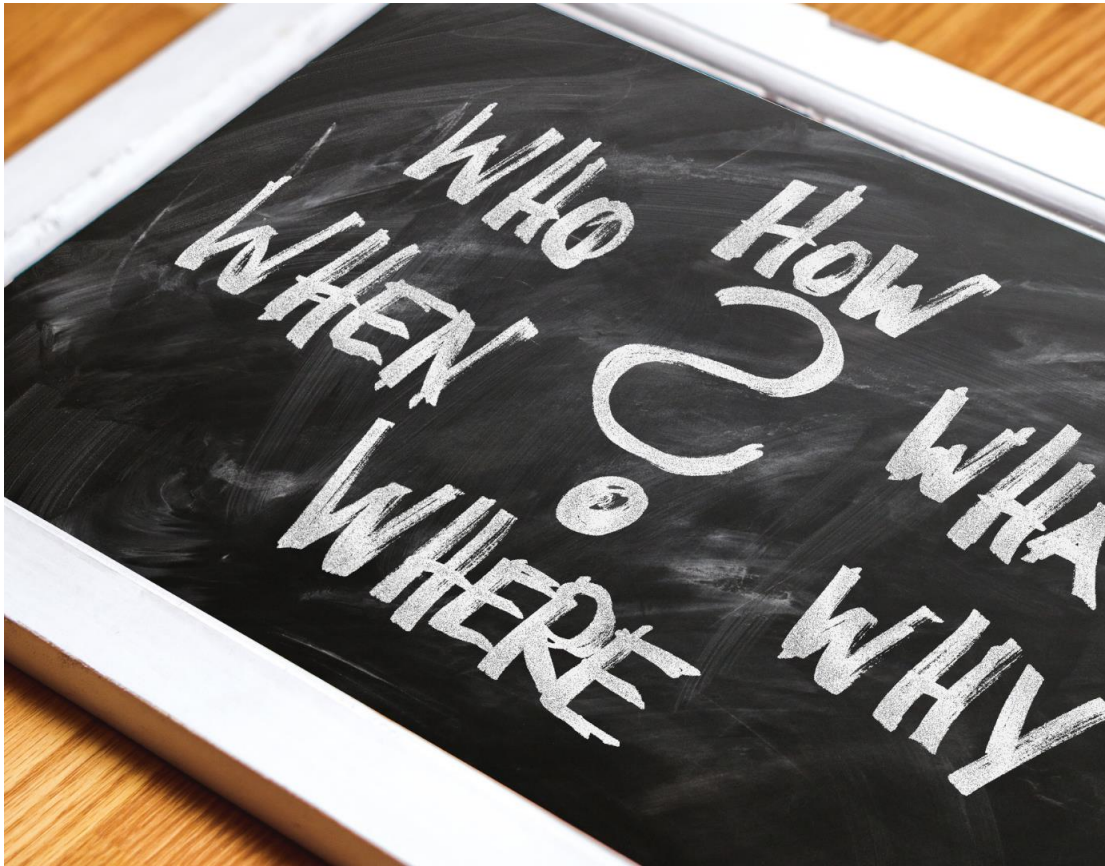 WHO
HOW
WHEN
?
WHA
WHERE
WHY